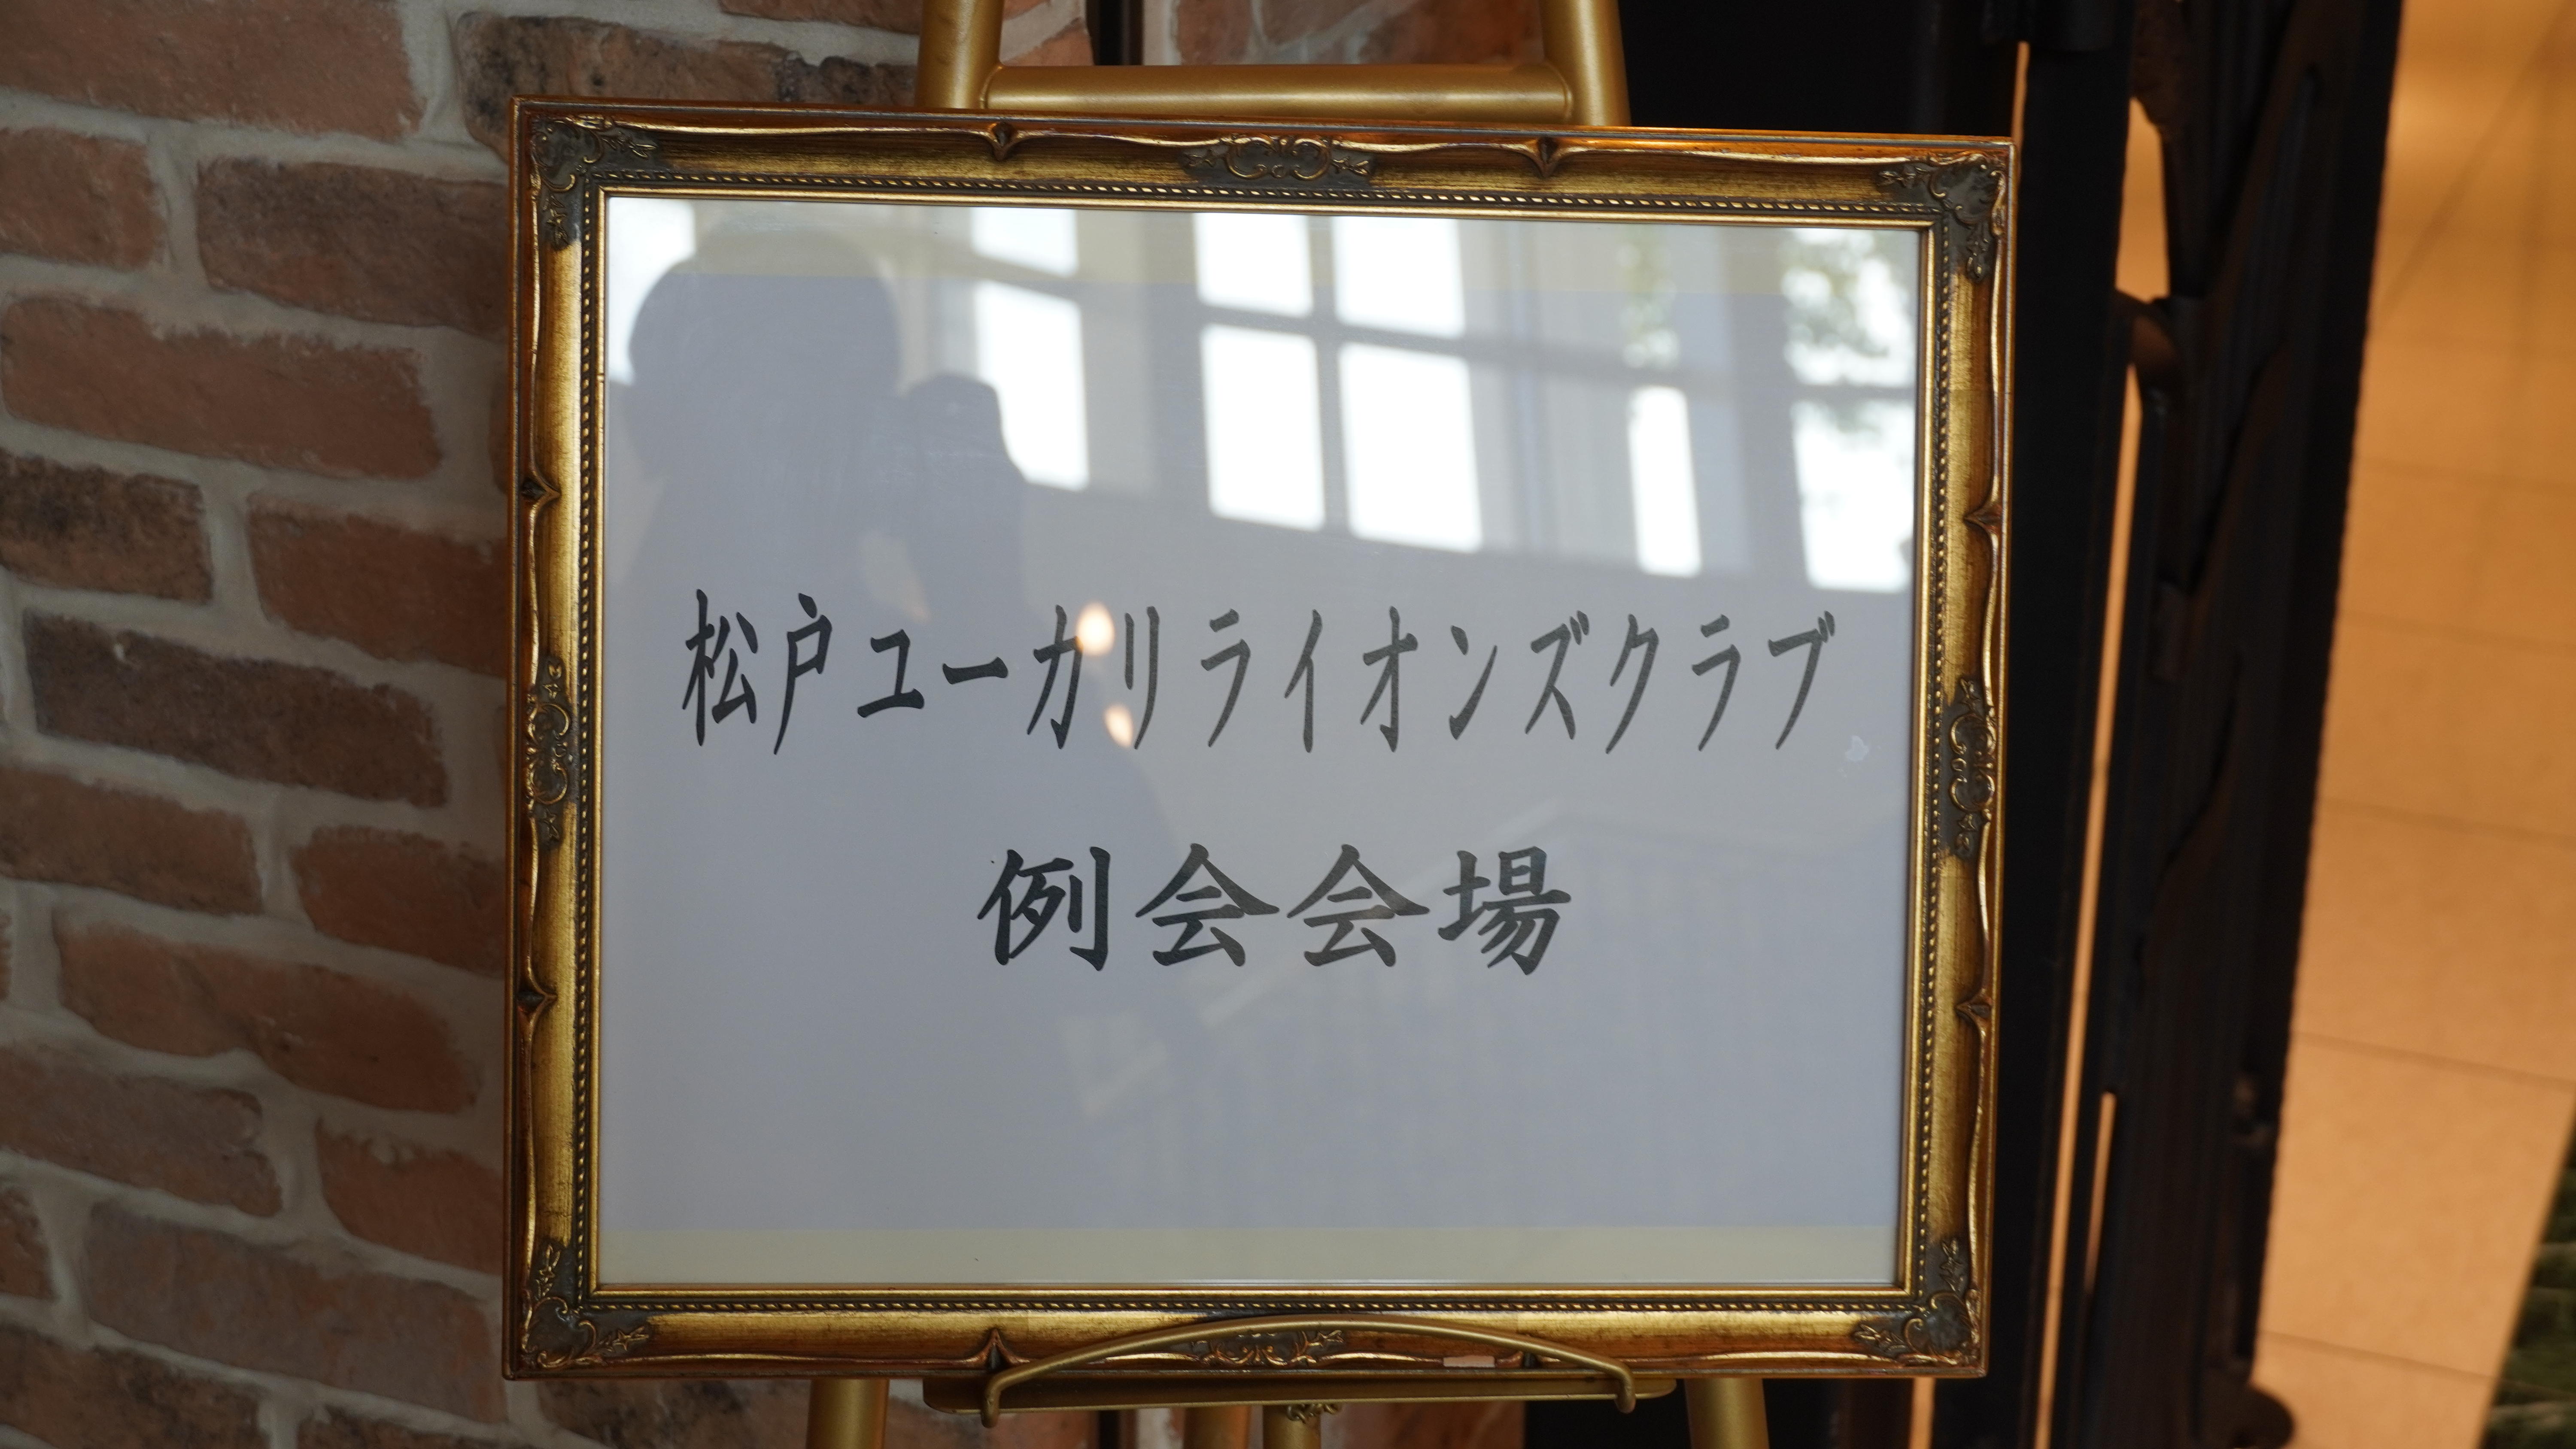 松戸ユーカリライオンズクラブ
例会会場